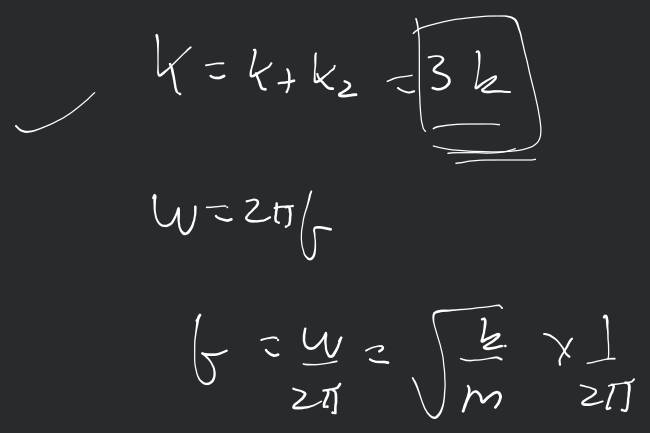 K = k + k₂ = 3k
ω = 2πf
f = ω/2π = √(k/m) × 1/2π